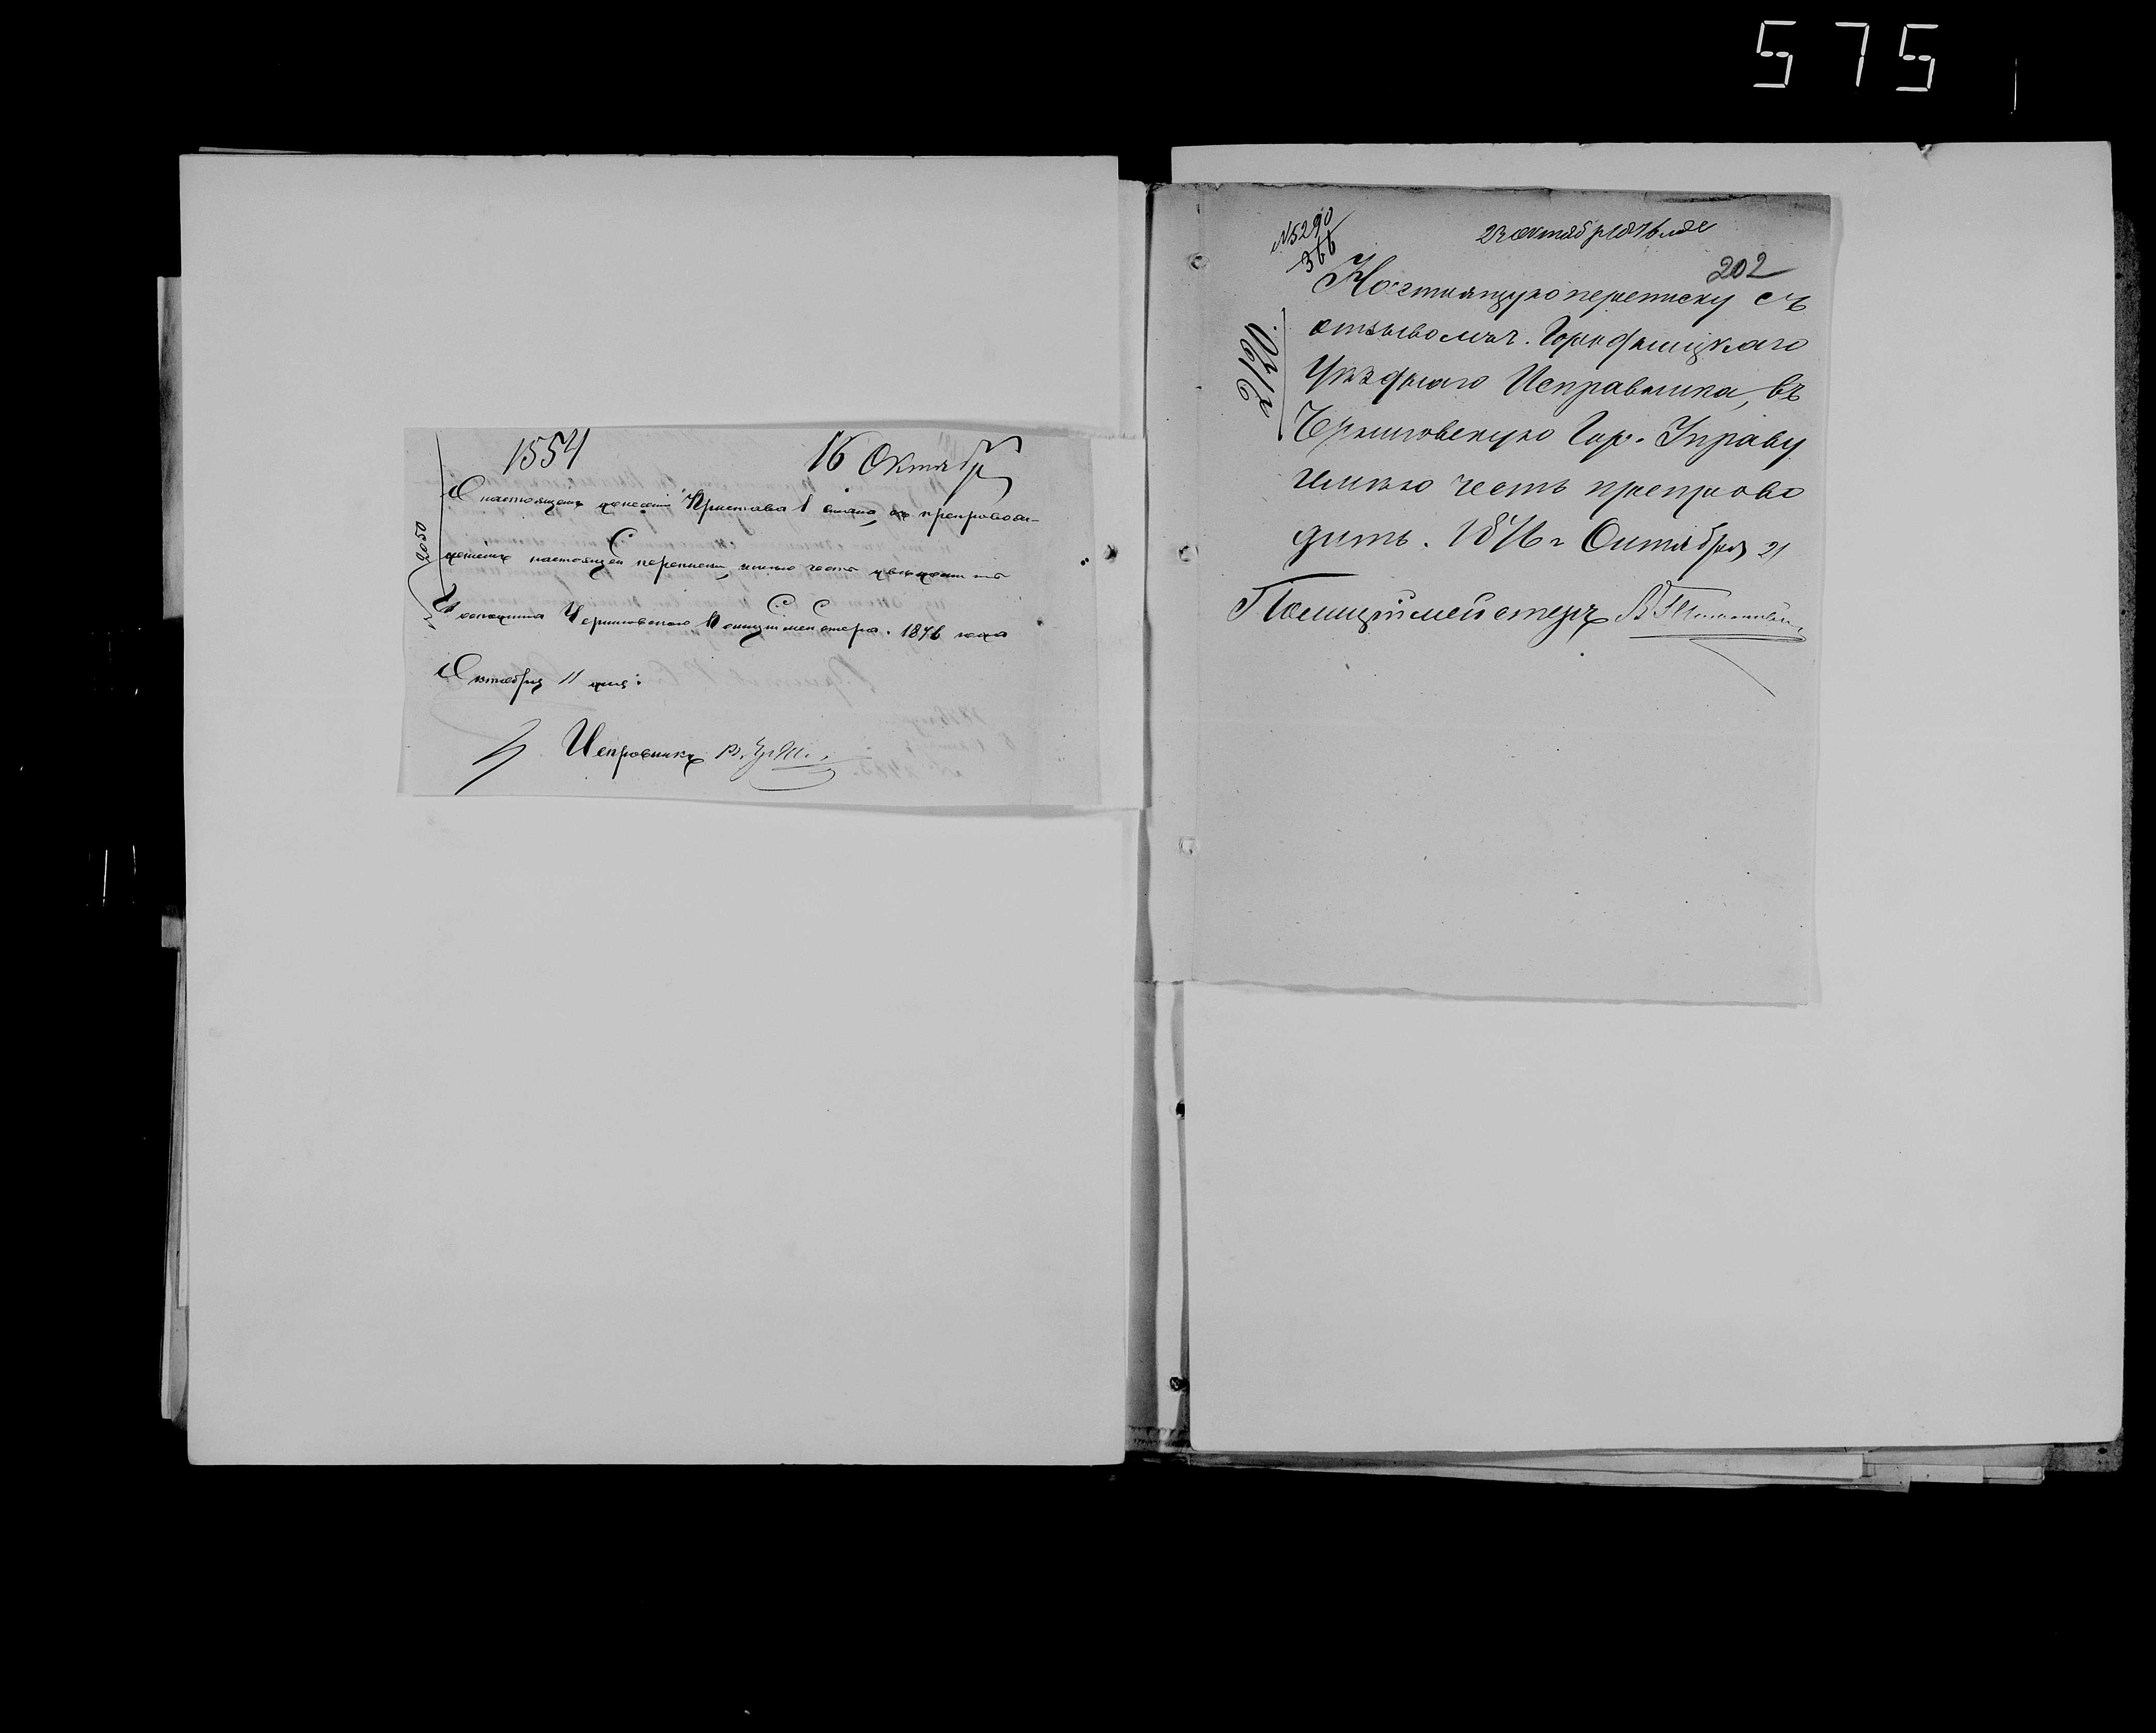 575
1554
16 Октяб
О настоящемъ донесеніи Пристава 1 стана, съ препровож-
деніемъ настоящей переписки, имѣю честь увѣдомить
Господина Черниговскаго Полиціймейстера. 1876 года
Октября 11 дня.
Исправникъ
№ 2050
№5290
366
23 октября 1876 года
202
Настоящую переписку съ
отзывомъ г. Городницкаго
Уѣзднаго Исправника, въ
Черниговскую Гор. Управу
имѣю честь препрово
дить. 1876 г Октября 21
Полиціймейстеръ